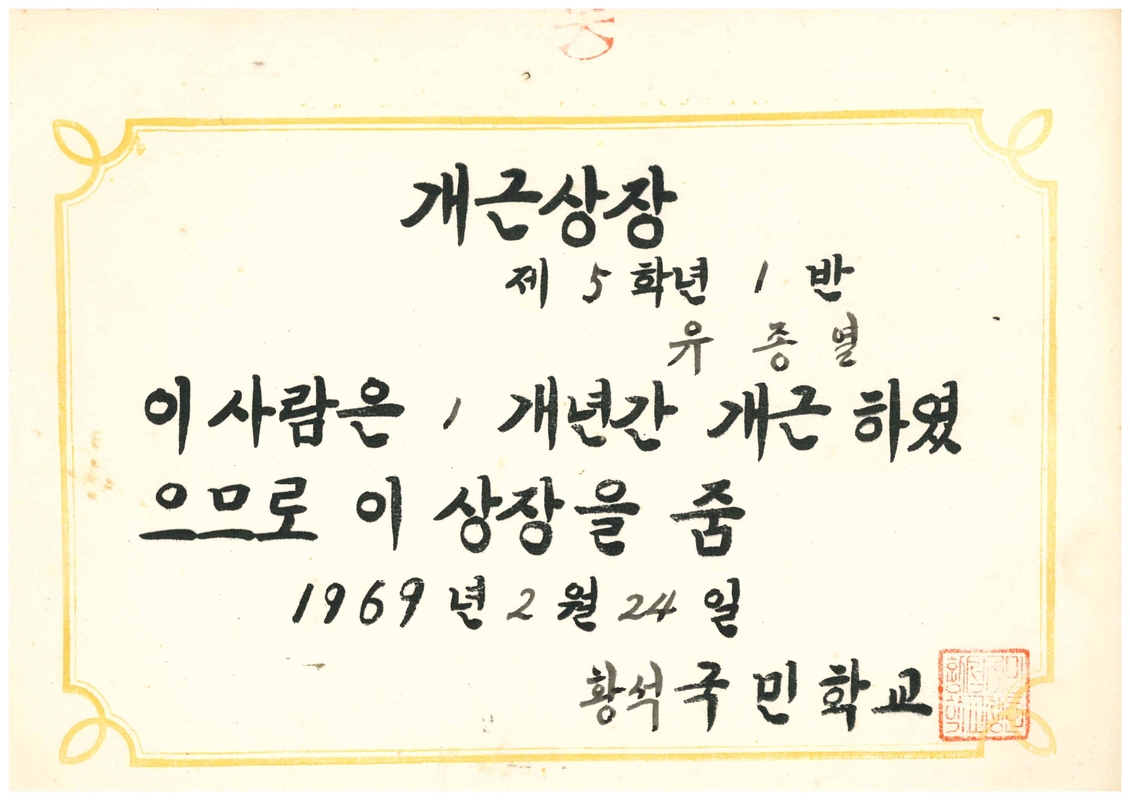 개근상장
제 5 학년 1 반
유 종 열
이 사람은 1 개년간 개근 하였
으므로 이 상장을 줌
1969 년 2 월 24 일
황석국민학교